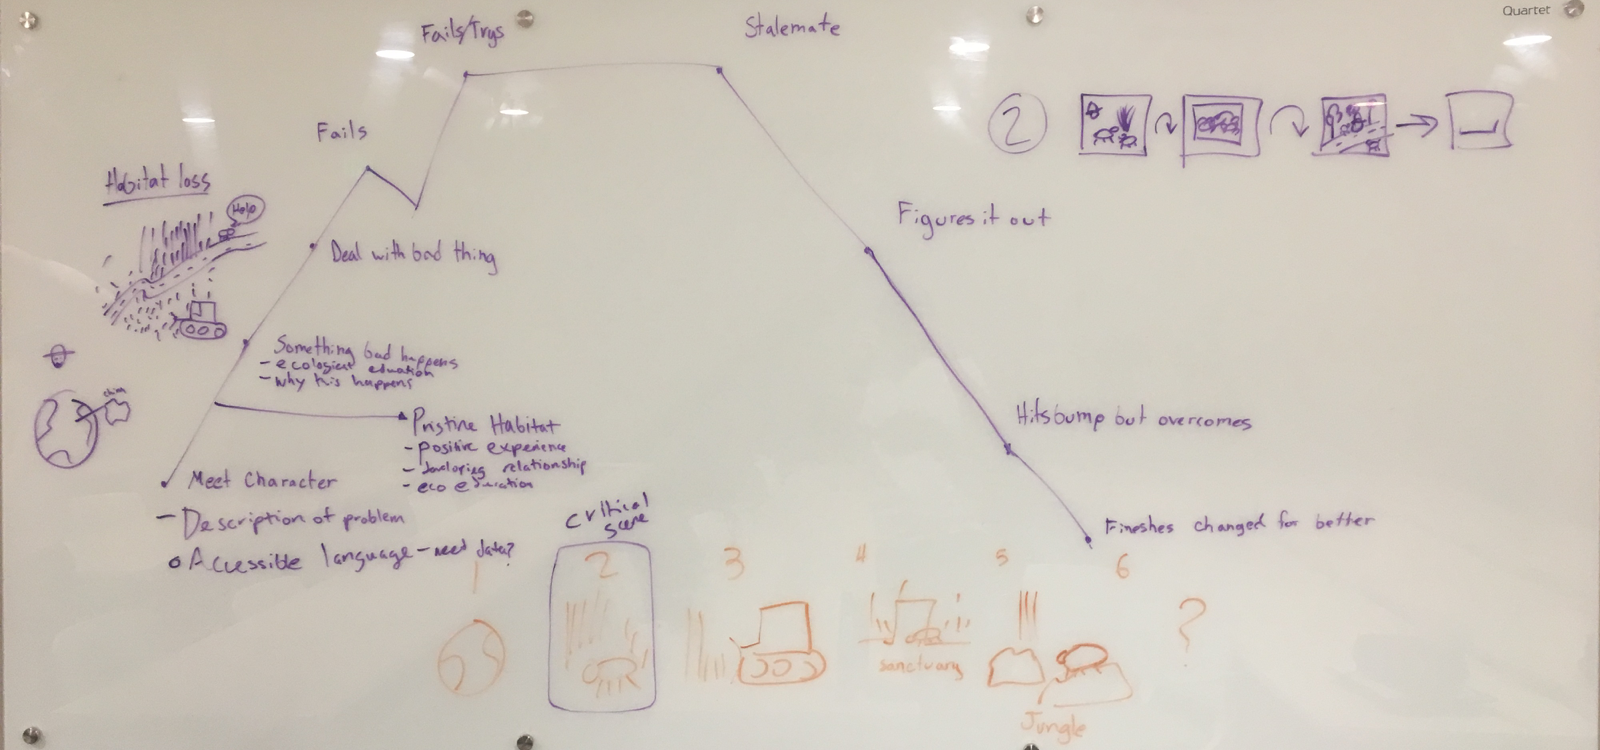 Quartet
Fails/Trys
Stalemate
Fails
2
Habitat loss
Help
Figures it out
Deal with bad thing
Something bad happens
- ecological eduation
- why this happens
China
Pristine Habitat
- positive experience
- developing relationship
- eco education
Hits bump but overcomes
Meet Character
- Description of problem
Accessible language - need data?
Critical
scene
Fineshes changed for better
1 2 3 4 5 6
?
sanctuary
Jungle